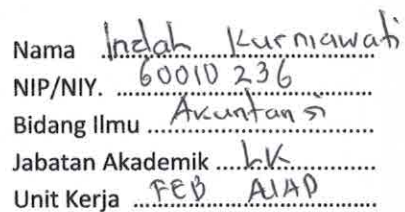 Nama Indah Kurniawati
NIP/NIY. 60010236
Bidang Ilmu Akuntansi
Jabatan Akademik LK
Unit Kerja FEB AIAP